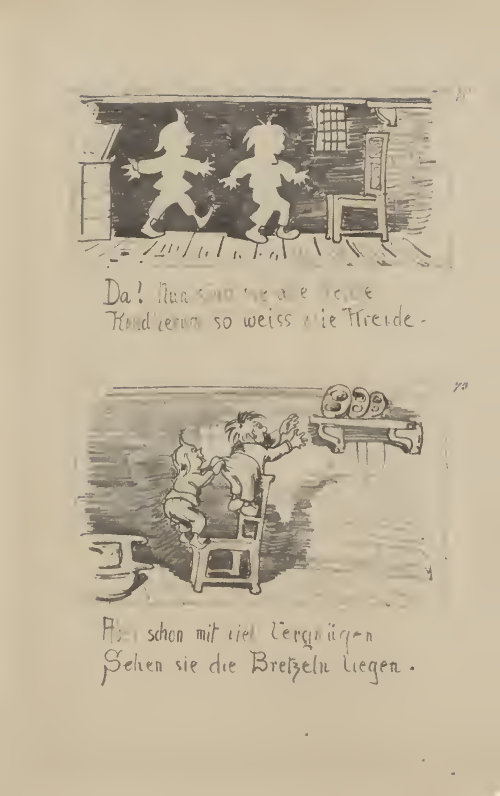 Da! Nun sind sie alle beide
Rund herum so weiss wie Kreide.
73
Aber schon mit viel Vergnügen
Sehen sie die Bretzeln liegen.